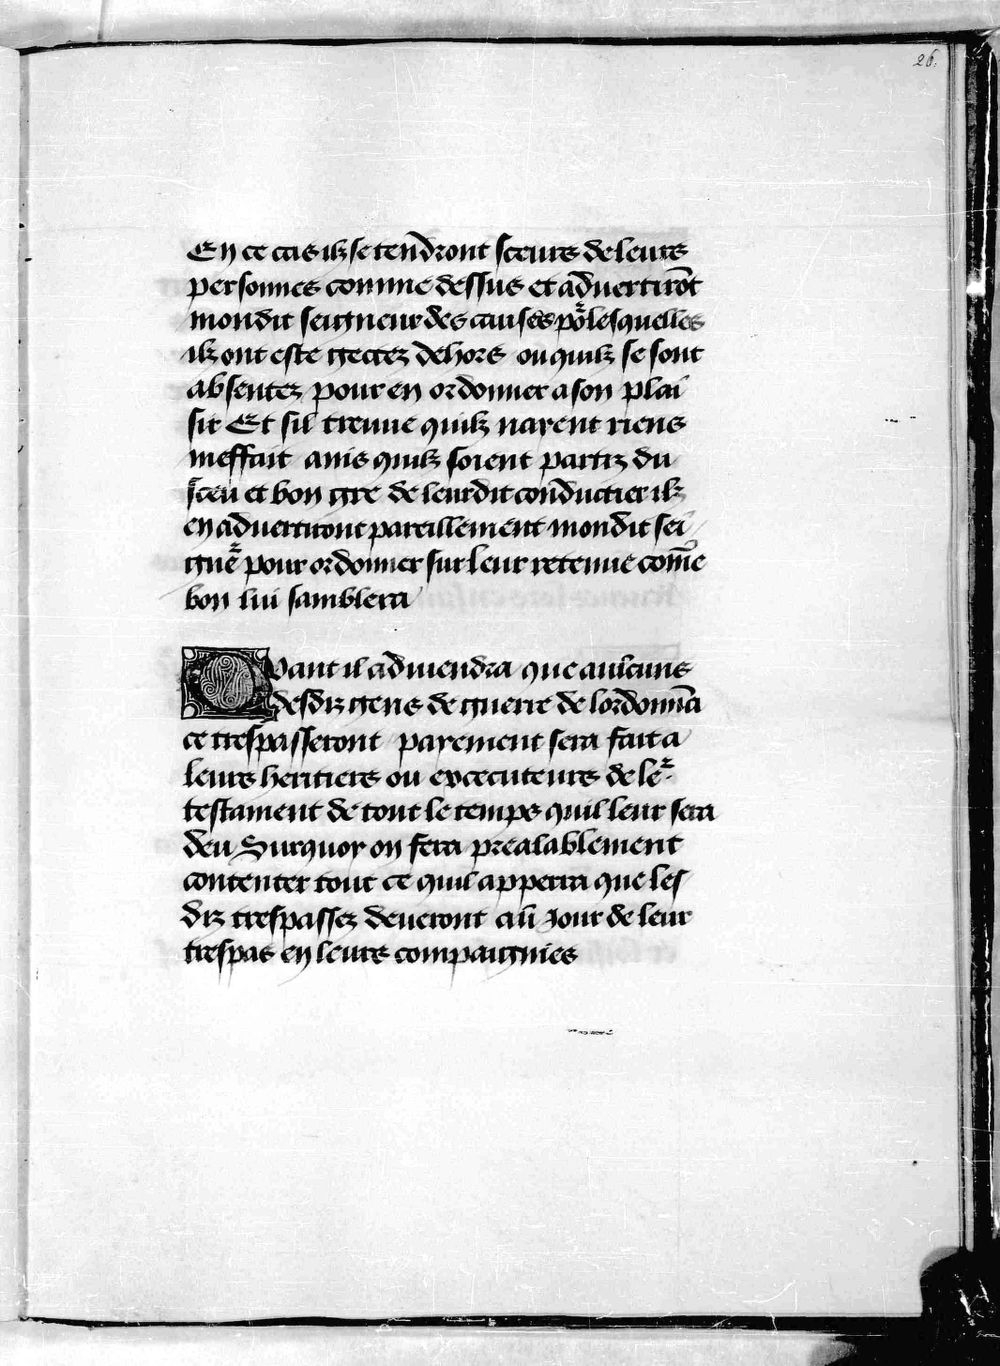 26.
En ce cas ilz se tendront sceurs de leurs
personnes comme dessus et aduertirõt
mondit seigneur des causes põr lesquelles
ilz ont este gectez dehors ou quilz se sont
absentez pour en ordonner a son plai
sir Et sil treuue quilz nayent riens
meffait anis quilz soient partiz du
sceu et bon gre de leurdit conductier ilz
en aduertiront pareillement mondit sei
gnẽr pour ordonner sur leur retenue com̃e
bon lui samblera
Quant il aduiendra que aulcuns
desdiz gens de guerre de lordonnã
ce trespasseront payement sera fait a
leurs heritiers ou executeurs de lẽr
testament de tout le temps quil leur sera
deu Surquoy on fera prealablement
contenter tout ce quil apperra que les
diz trespassez deueront au jour de leur
trespas en leurs compaignies